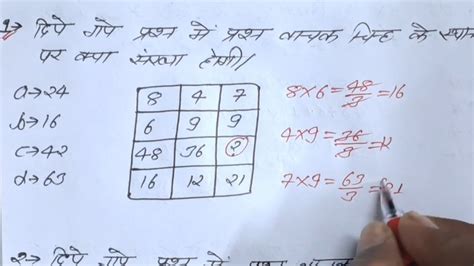 1→ दिये गये प्रश्न में प्रश्न वाचक चिन्ह के स्थान
पर क्या संख्या होगी।
a→24
b→16
c→42
d→63
8 4 7
6 9 9
48 36 ?
16 12 21
8×6=48/3=16
4×9=36/3=12
7×9=63/3=21
2→ दिये गये प्रश्न में प्रश्न